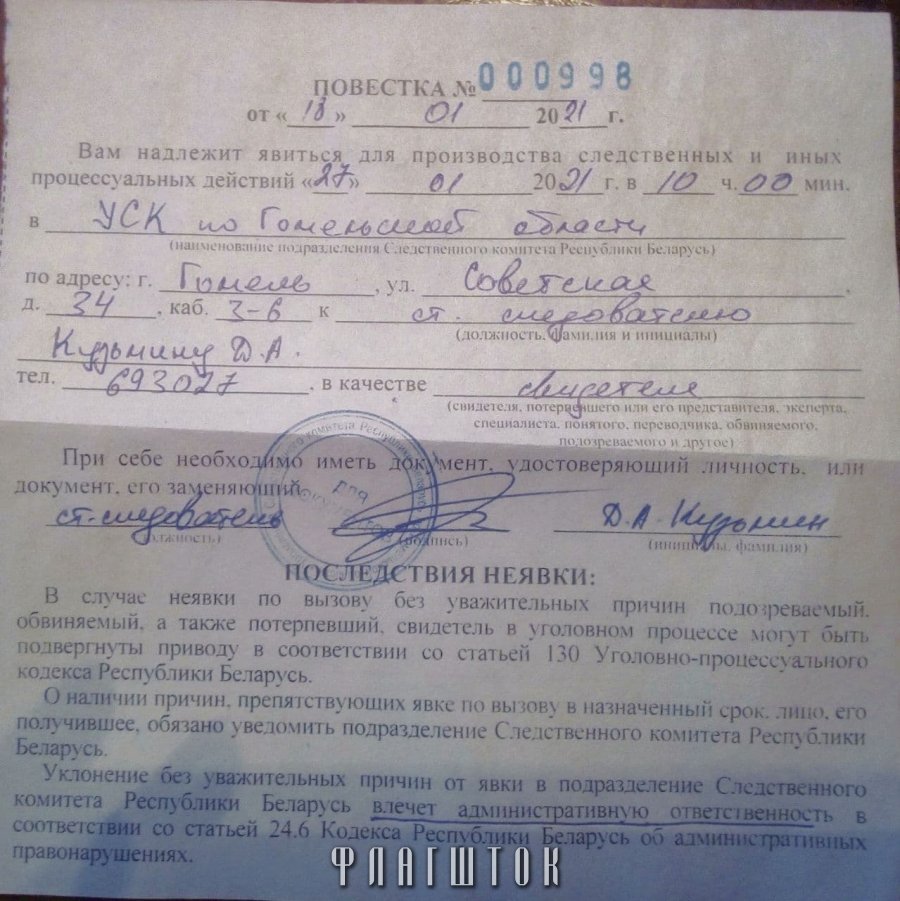 ПОВЕСТКА № 000998
от «18» 01 2021 г.
Вам надлежит явиться для производства следственных и иных
процессуальных действий «27» 01 2021 г. в 10 ч. 00 мин.
в УСК по Гомельской области
(наименование подразделения Следственного комитета Республики Беларусь)
по адресу: г. Гомель, ул. Советская,
д. 34, каб. 3-6 к ст. следователю
(должность, фамилия и инициалы)
Кузьмину Д.А.
тел. 693027, в качестве свидетеля
(свидетеля, потерпевшего или его представителя, эксперта,
специалиста, понятого, переводчика, обвиняемого,
подозреваемого и другое)
При себе необходимо иметь документ, удостоверяющий личность, или
документ, его заменяющий
ст. следователь Д.А. Кузьмин
(должность) (подпись) (инициалы, фамилия)
для
документов
ПОСЛЕДСТВИЯ НЕЯВКИ:
В случае неявки по вызову без уважительных причин подозреваемый,
обвиняемый, а также потерпевший, свидетель в уголовном процессе могут быть
подвергнуты приводу в соответствии со статьей 130 Уголовно-процессуального
кодекса Республики Беларусь.
О наличии причин, препятствующих явке по вызову в назначенный срок, лицо, его
получившее, обязано уведомить подразделение Следственного комитета Республики
Беларусь.
Уклонение без уважительных причин от явки в подразделение Следственного
комитета Республики Беларусь влечет административную ответственность в
соответствии со статьей 24.6 Кодекса Республики Беларусь об административных
правонарушениях.
ФЛАГШТОК